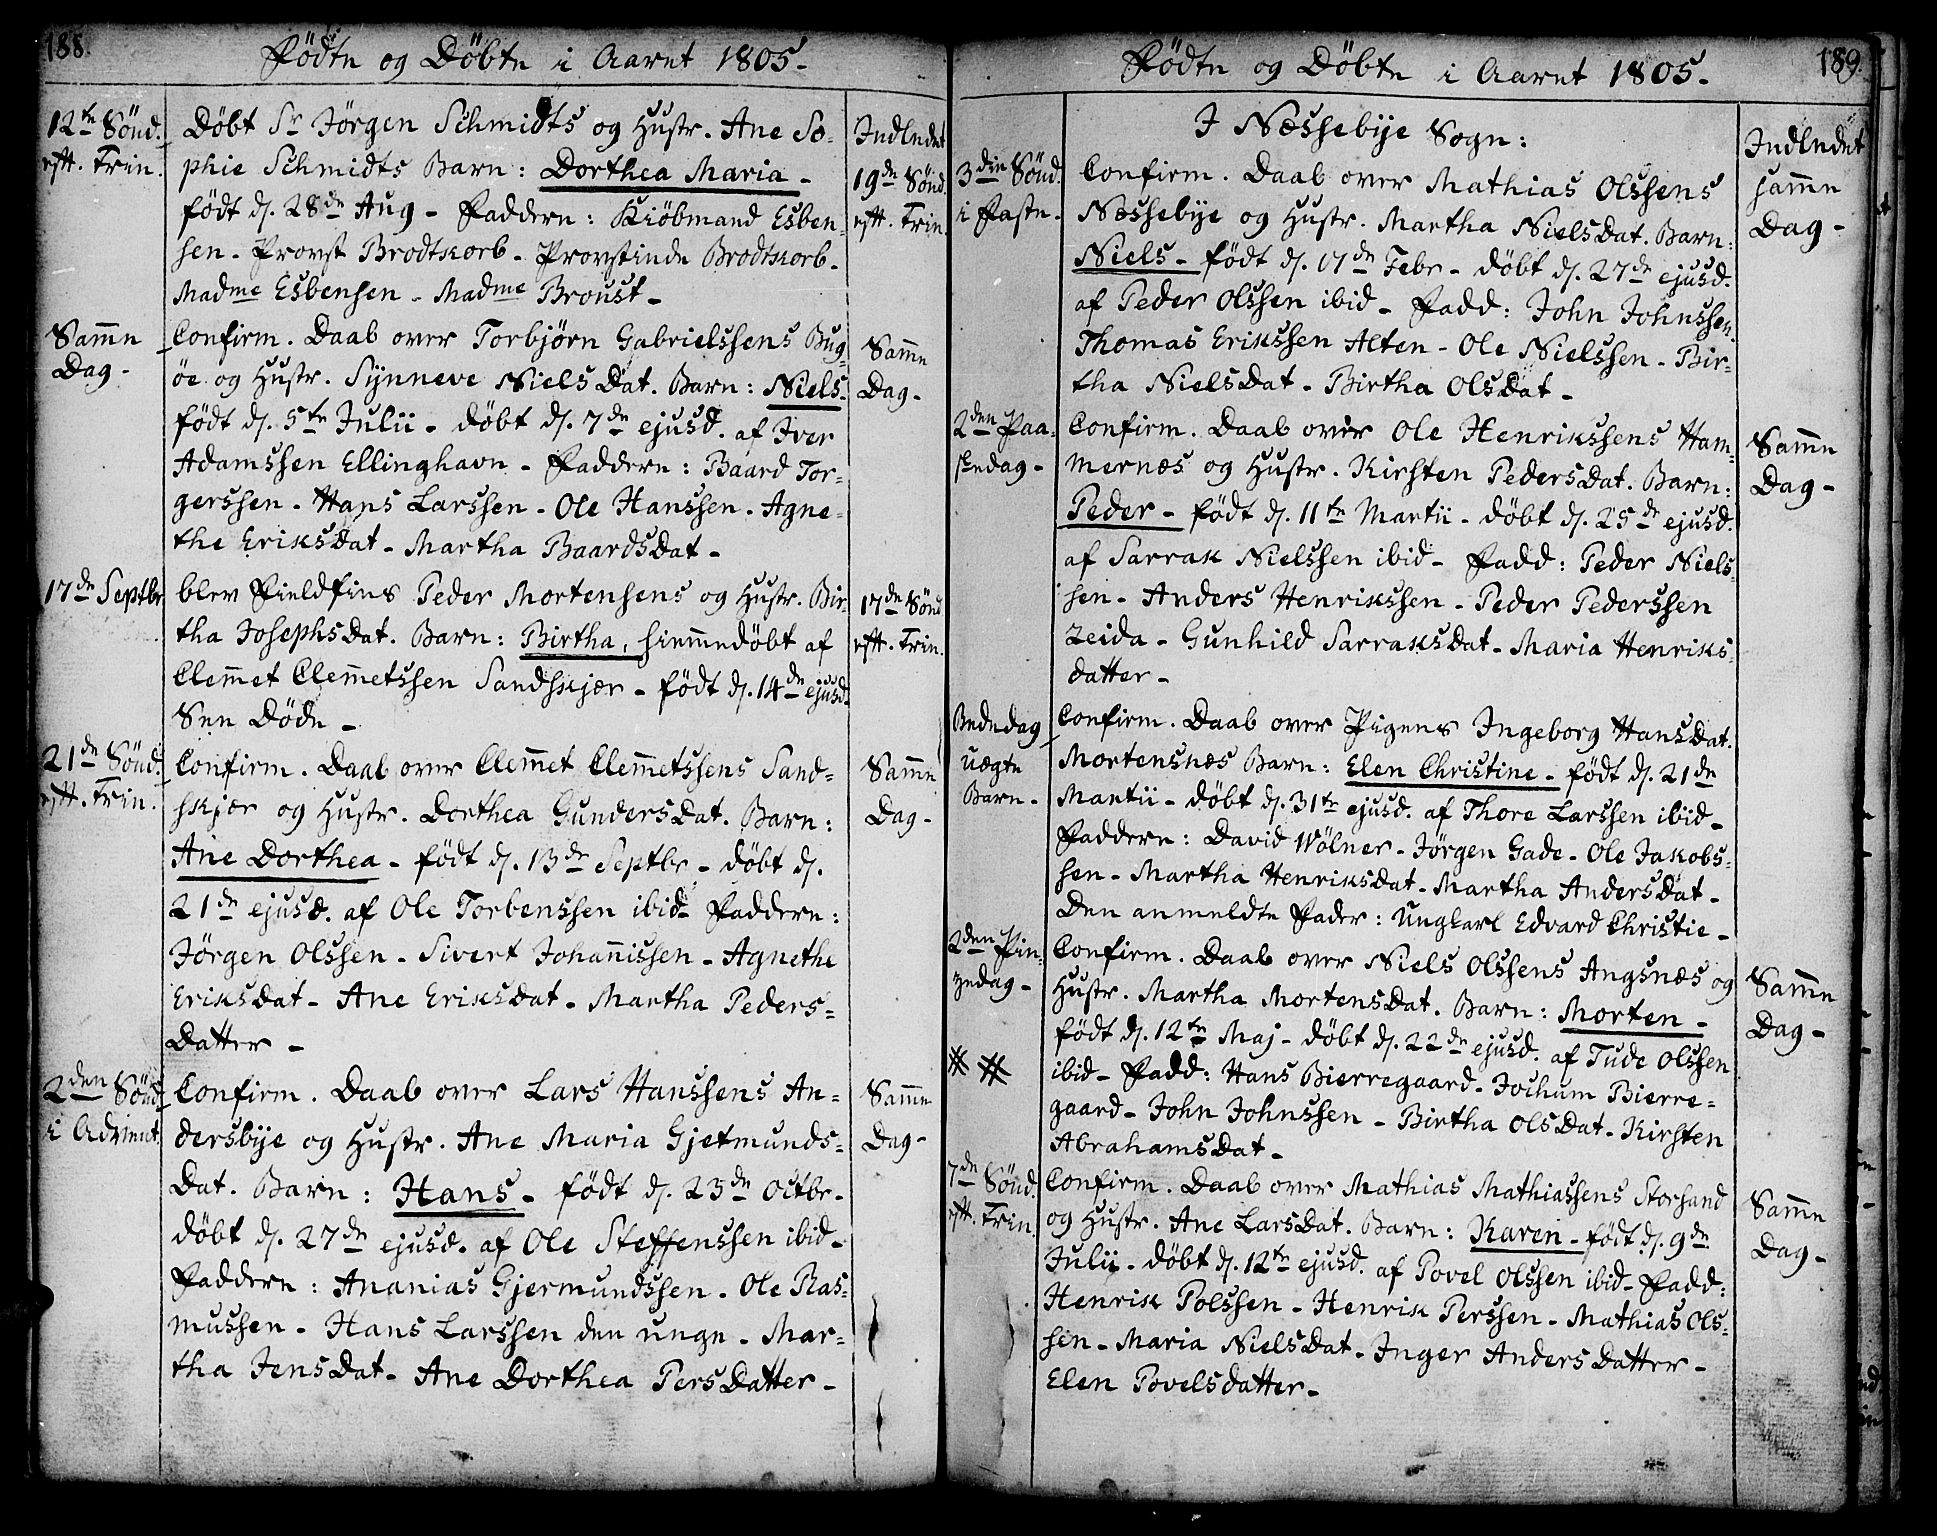 188.
Fødte og Døbte i Aaret 1805.
12te Sönd.
eft. Trin.
Døbt Sr Jørgen Schmidts og Hustr. Ane So-
phie Schmidts Barn: Dorthea Maria -
født d. 28de Aug - Faddere: Kiøbmand Esben-
sen - Provst Brodtkorb - Provstinde Brodtkorb -
Madme Esbensen - Madme Broust -
Indledet
19de Sönd.
eft. Trin.
Samme
Dag -
Confirm. Daab over Torbjørn Gabrielssens Bug-
øe og Hustr. Synneve NielsDat. Barn: Niels -
født d. 5te Julii - døbt d. 7de ejusd. af Iver
Adamssen Ellinghavn - Faddere: Baard Tor-
gerssen - Hans Larssen - Ole Hanssen - Agne-
the EriksDat - Martha BaardsDat -
Samme
Dag -
17de Septbr
blev Fieldfins Peder Mortensens og Hustr. Bir-
tha JosephsDat. Barn: Birtha, hiemmedøbt af
Clemmet Clemmetssen Sandskjær - født d. 14de ejusd.
Sen Døde -
17de Sönd
eft. Trin.
21de Sönd.
eft. Trin.
Confirm. Daab over Clemmet Clemmetssens Sand-
skjær og Hustr. Dorthea GundersDat. Barn:
Ane Dorthea - født d. 13de Septbr - døbt d.
21de ejusd. af Ole Torbenssen ibid - Faddere:
Jörgen Olssen - Sivert Johannissen - Agnethe
EriksDat - Ane EriksDat - Martha Peders-
Datter -
Samme
Dag -
2den Sönd.
i Advent.
Confirm. Daab over Lars Hanssens An-
dersbye og Hustr. Ane Maria Gjetmunds-
Dat. Barn: Hans - født d. 23de Octbr -
døbt d. 27de ejusd. af Ole Steffenssen ibid -
Faddere: Ananias Gjermundssen - Ole Ras-
mussen - Hans Larssen den unge - Mar-
tha JensDat - Ane Dorthea PersDatter -
Samme
Dag -
189.
Fødte og Døbte i Aaret 1805.
I Næssebye Sogn:
3die Sönd.
i Faste -
Confirm. Daab over Mathias Olssens
Næssebye og Hustr. Martha NielsDat. Barn:
Niels - født d. 17de Febr - døbt d. 27de ejusd.
af Peder Olssen ibid - Fadd: John Johnssen.
Thomas Erikssen Alten - Ole Nielssen - Bir-
tha NielsDat - Birtha OlsDat -
Indledet
samme
Dag -
2den Paa-
skedag -
Confirm. Daab over Ole Henrikssens Ham-
mernæs og Hustr. Kirsten PedersDat. Barn:
Peder - født d. 11te Martii - døbt d. 25de ejusd.
af Sarrak Nielssen ibid - Fadd: Peder Niels-
sen - Anders Henrikssen - Peder Pederssen
Zeida - Gunhild SarraksDat - Maria Henriks-
datter -
Samme
Dag -
Bededag
uægte
Barn -
Confirm. Daab over Pigens Ingeborg HansDat.
Mortensnæs Barn: Elen Christine - født d. 21de
Martii - døbt d. 31te ejusd. af Thore Larssen ibid -
Faddere: David Wölner - Jørgen Gade - Ole Jakobs-
sen - Martha HenriksDat - Martha AndersDat -
Den anmeldte Fader: Ungkarl Edvard Christie -
2den Pin-
zedag -
Confirm. Daab over Niels Olssens Angsnæs og
Hustr. Martha MortensDat. Barn: Morten -
født d. 12te Maj - døbt d. 22de ejusd. af Tude Olssen
ibid - Fadd: Hans Bierregaard - Jochum Bierre-
gaard - John Johnssen - Birtha OlsDat - Kirsten
AbrahamsDat -
Samme
Dag -
7de Sönd.
eft. Trin.
Confirm. Daab over Mathias Mathiassens Storsand
og Hustr. Ane LarsDat. Barn: Karen - født d. 9de
Julii - døbt d. 12te ejusd. af Povel Olssen ibid - Fadd:
Henrik Polssen - Henrik Perssen - Mathias Ols-
sen - Maria NielsDat - Inger AndersDatter -
Elen Povelsdatter -
Samme
Dag -